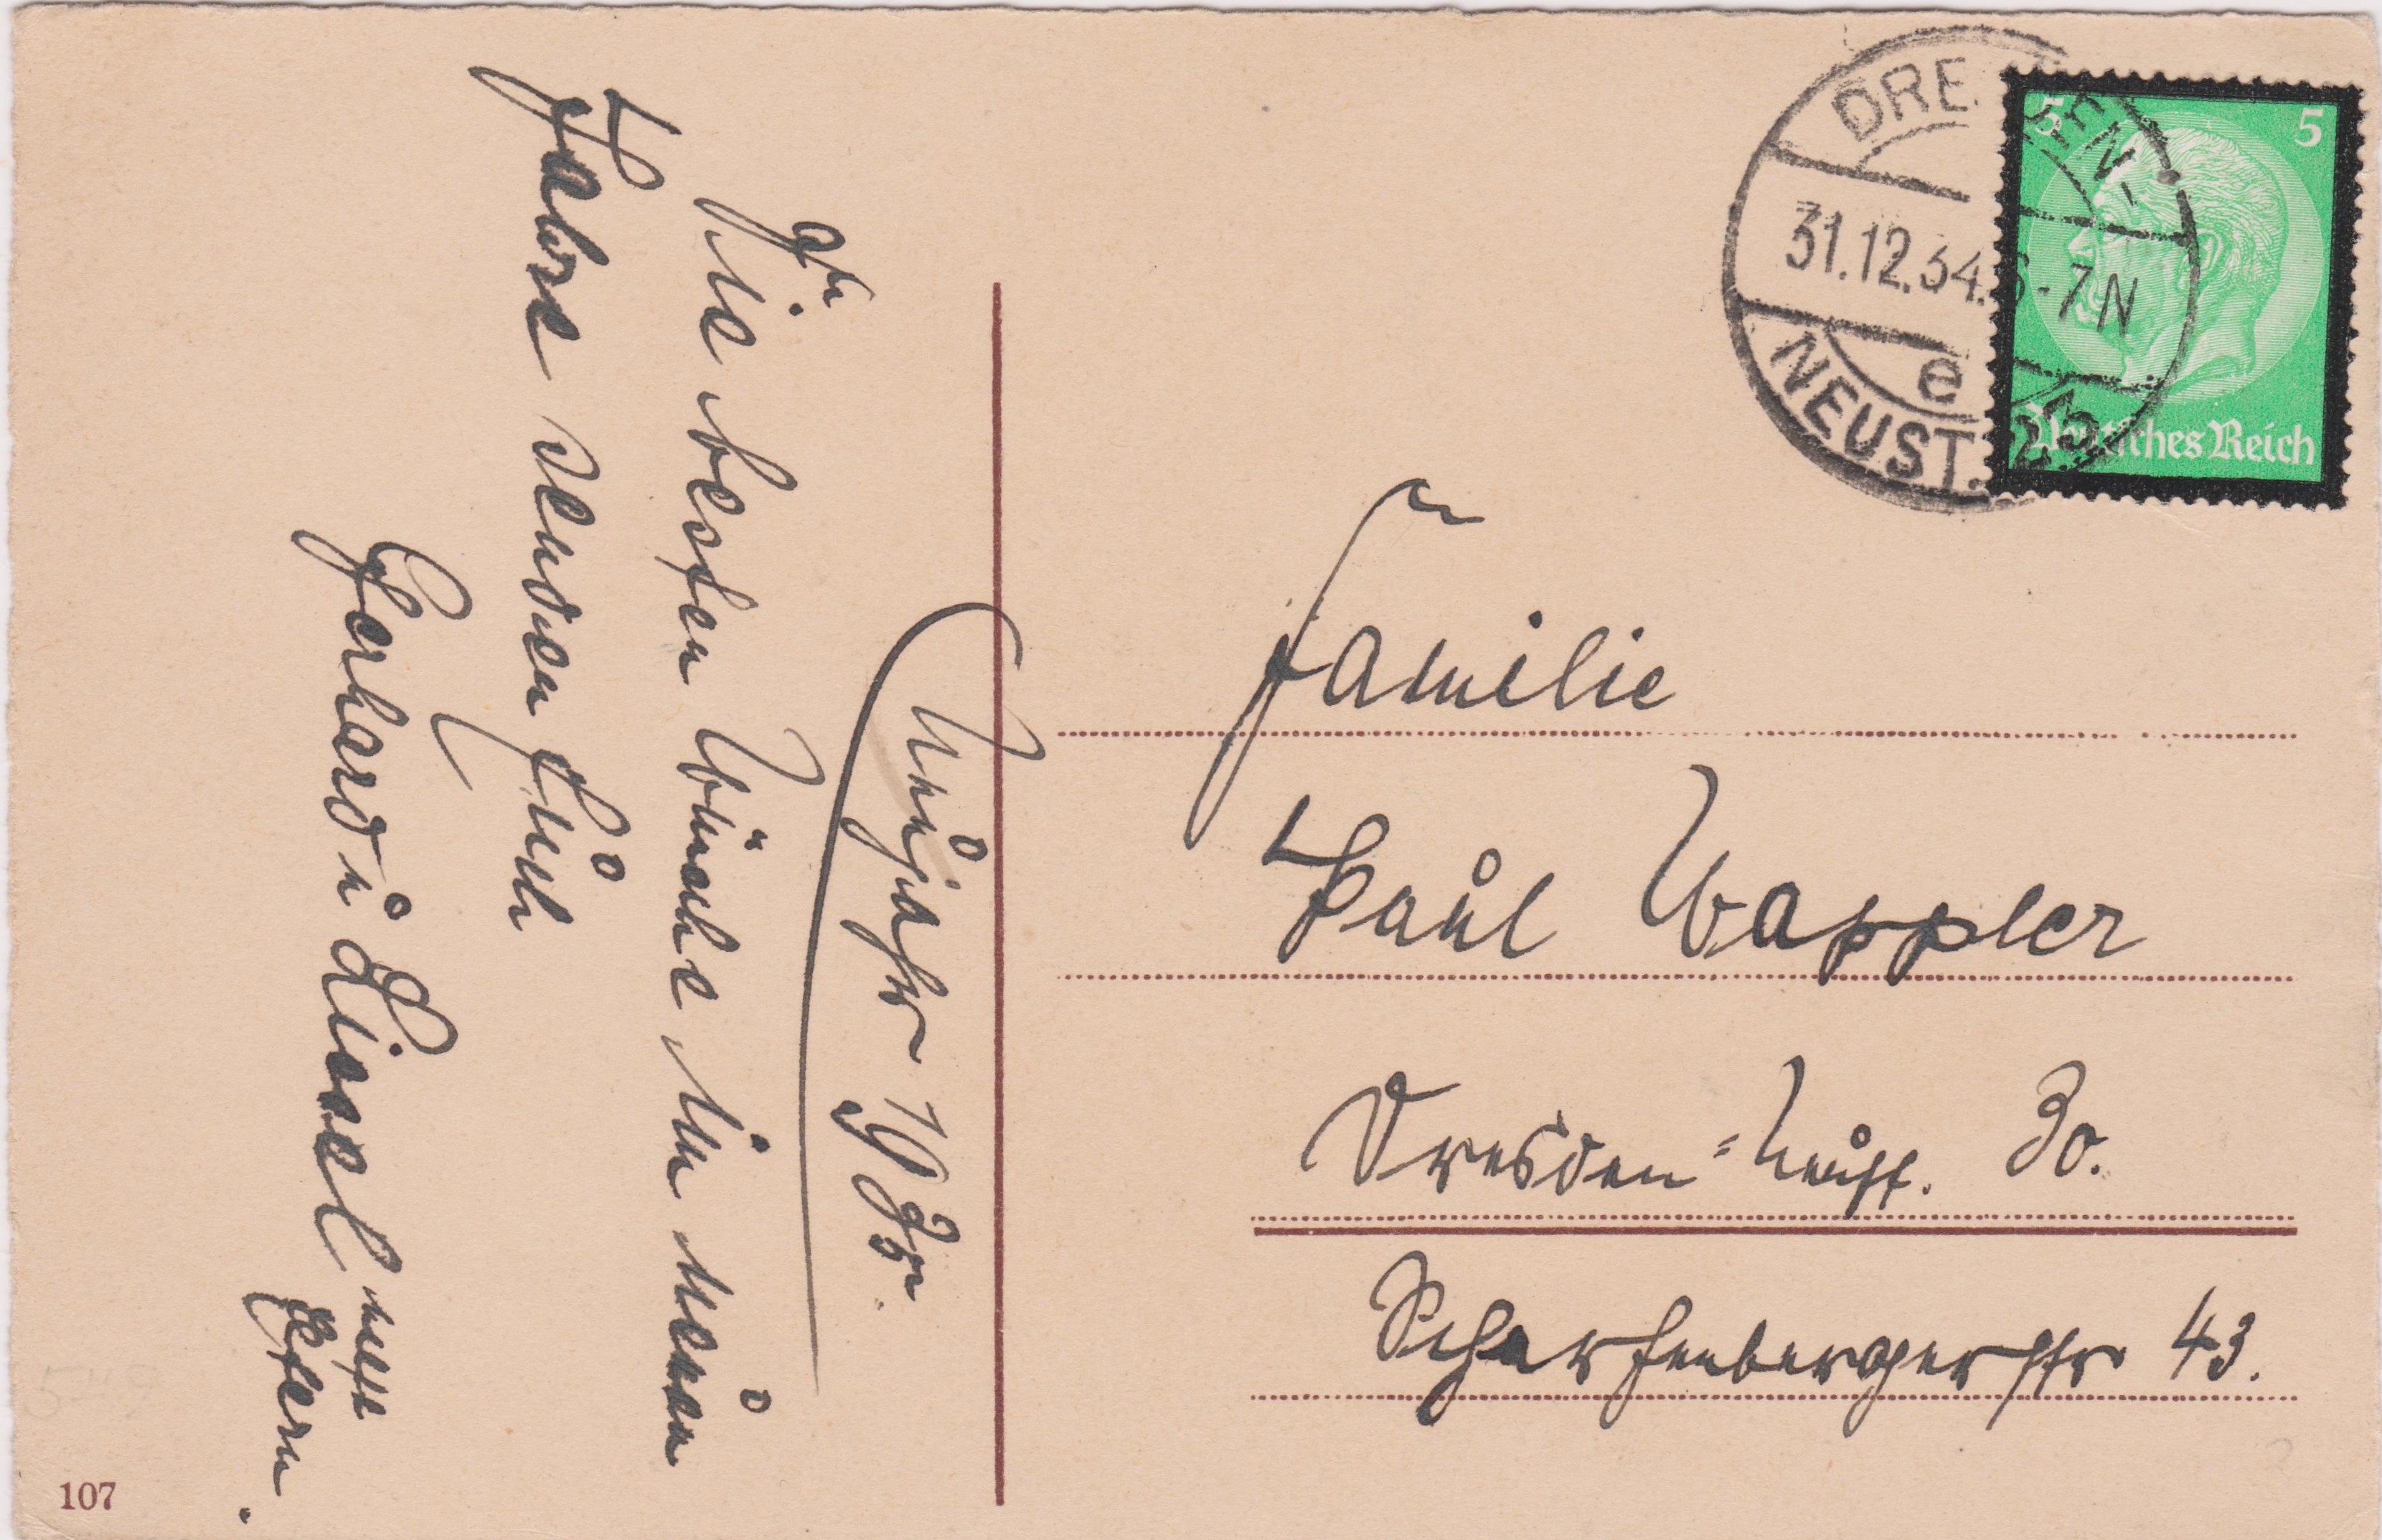 Neujahr 1935.
Die besten Wünsche zum neuen
Jahre senden Euch
Gerhard u. Liesel
nebst
Eltern.
DRESDEN-
31.12.34. 6-7N
e
NEUST. 25
5
5
Deutsches Reich
Familie
Paul Wappler
Dresden=Neust. 30.
Scharfenbergerstr 43.
107